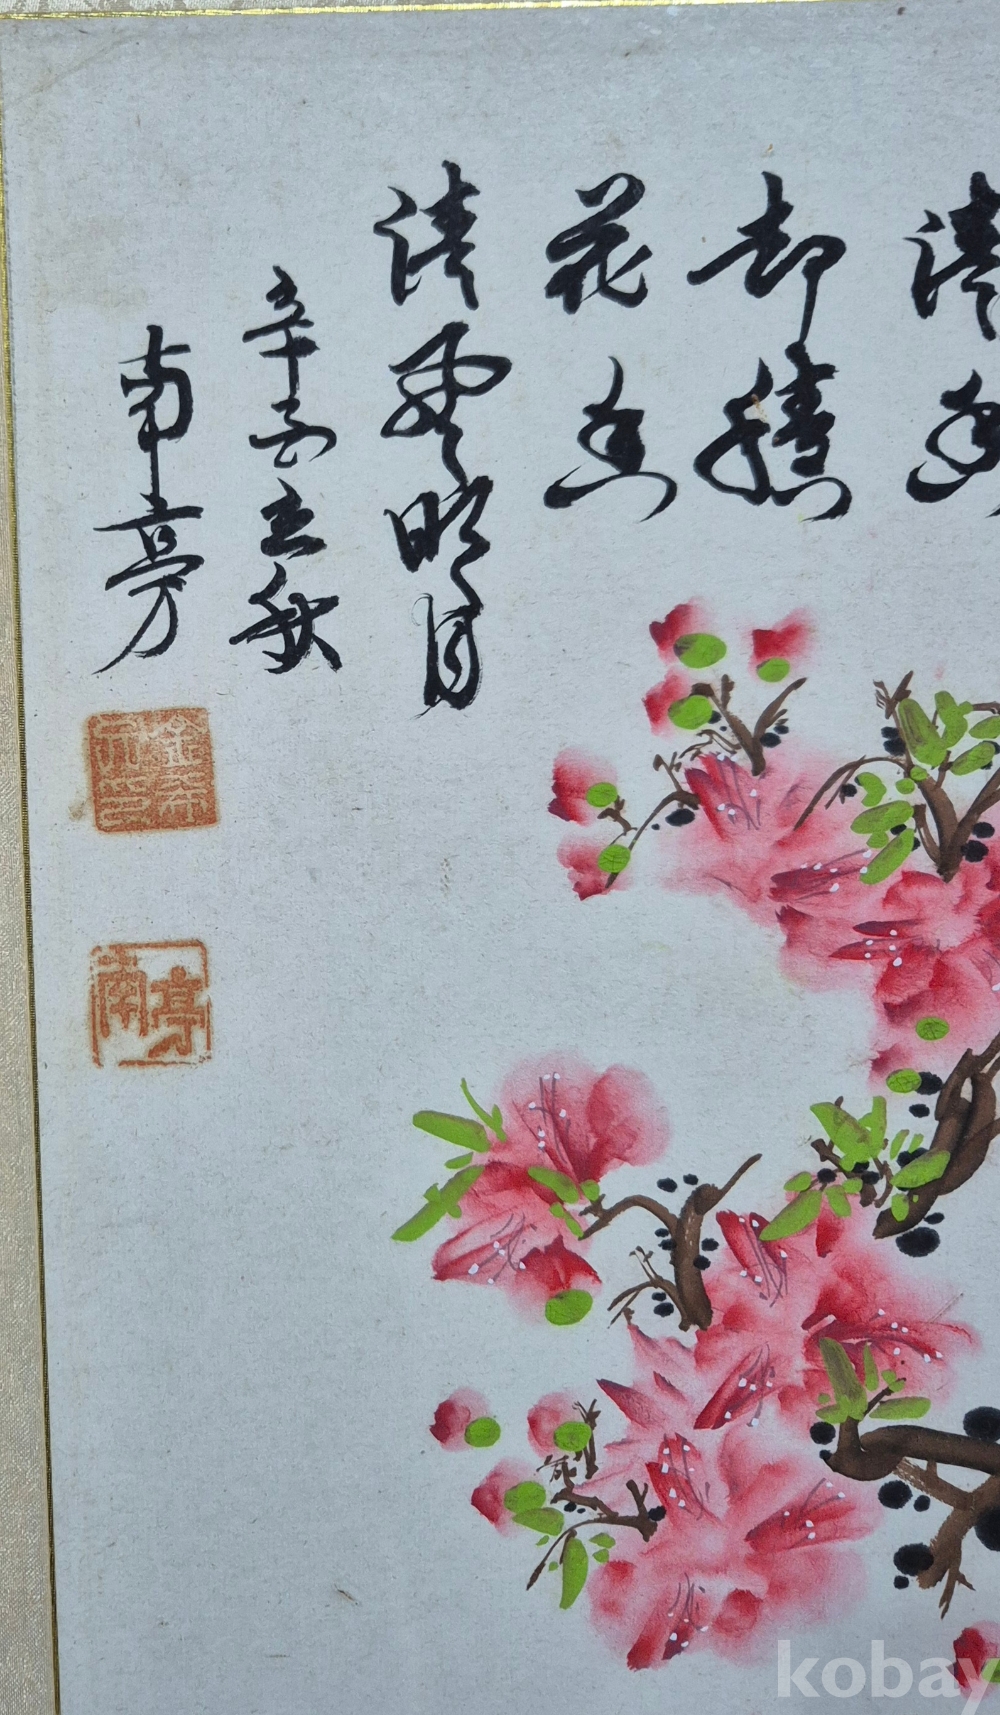 清香
却勝
花香
清風明月
辛酉立秋
南亭
南亭
kobay